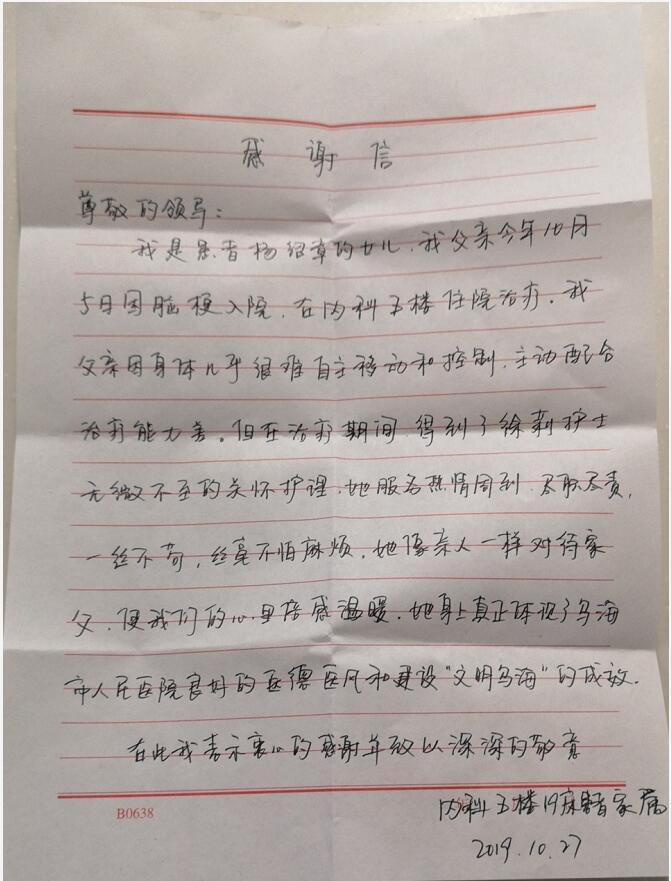 感谢信
尊敬的领导：
我是患者杨绍章的女儿，我父亲今年10月
5日因脑梗入院，在内科五楼住院治疗。我
父亲因身体几乎很难自主移动和控制，主动配合
治疗能力差。但在治疗期间，得到了徐莉护士
无微不至的关怀护理，她服务热情周到，尽职尽责，
一丝不苟，丝毫不怕麻烦，她像亲人一样对待家
父，使我们的心里倍感温暖，她身上真正体现了乌海
市人民医院良好的医德医风和建设“文明乌海”的成效．
在此我表示衷心的感谢并致以深深的敬意
内科五楼19床患者家属
2019.10.27
B0638